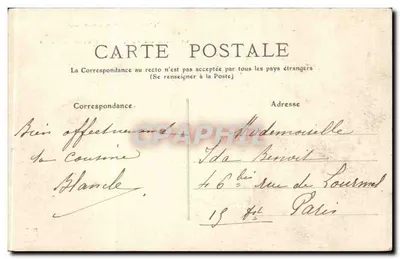 CARTE POSTALE
La Correspondance au recto n'est pas acceptée par tous les pays étrangers
(Se renseigner à la Poste)
Correspondance
Adresse
Bien affectueuse
ta cousine
Blanche
Mademoiselle
Ida Benoit
46 bis rue de Lourmel
15 Ast
Paris